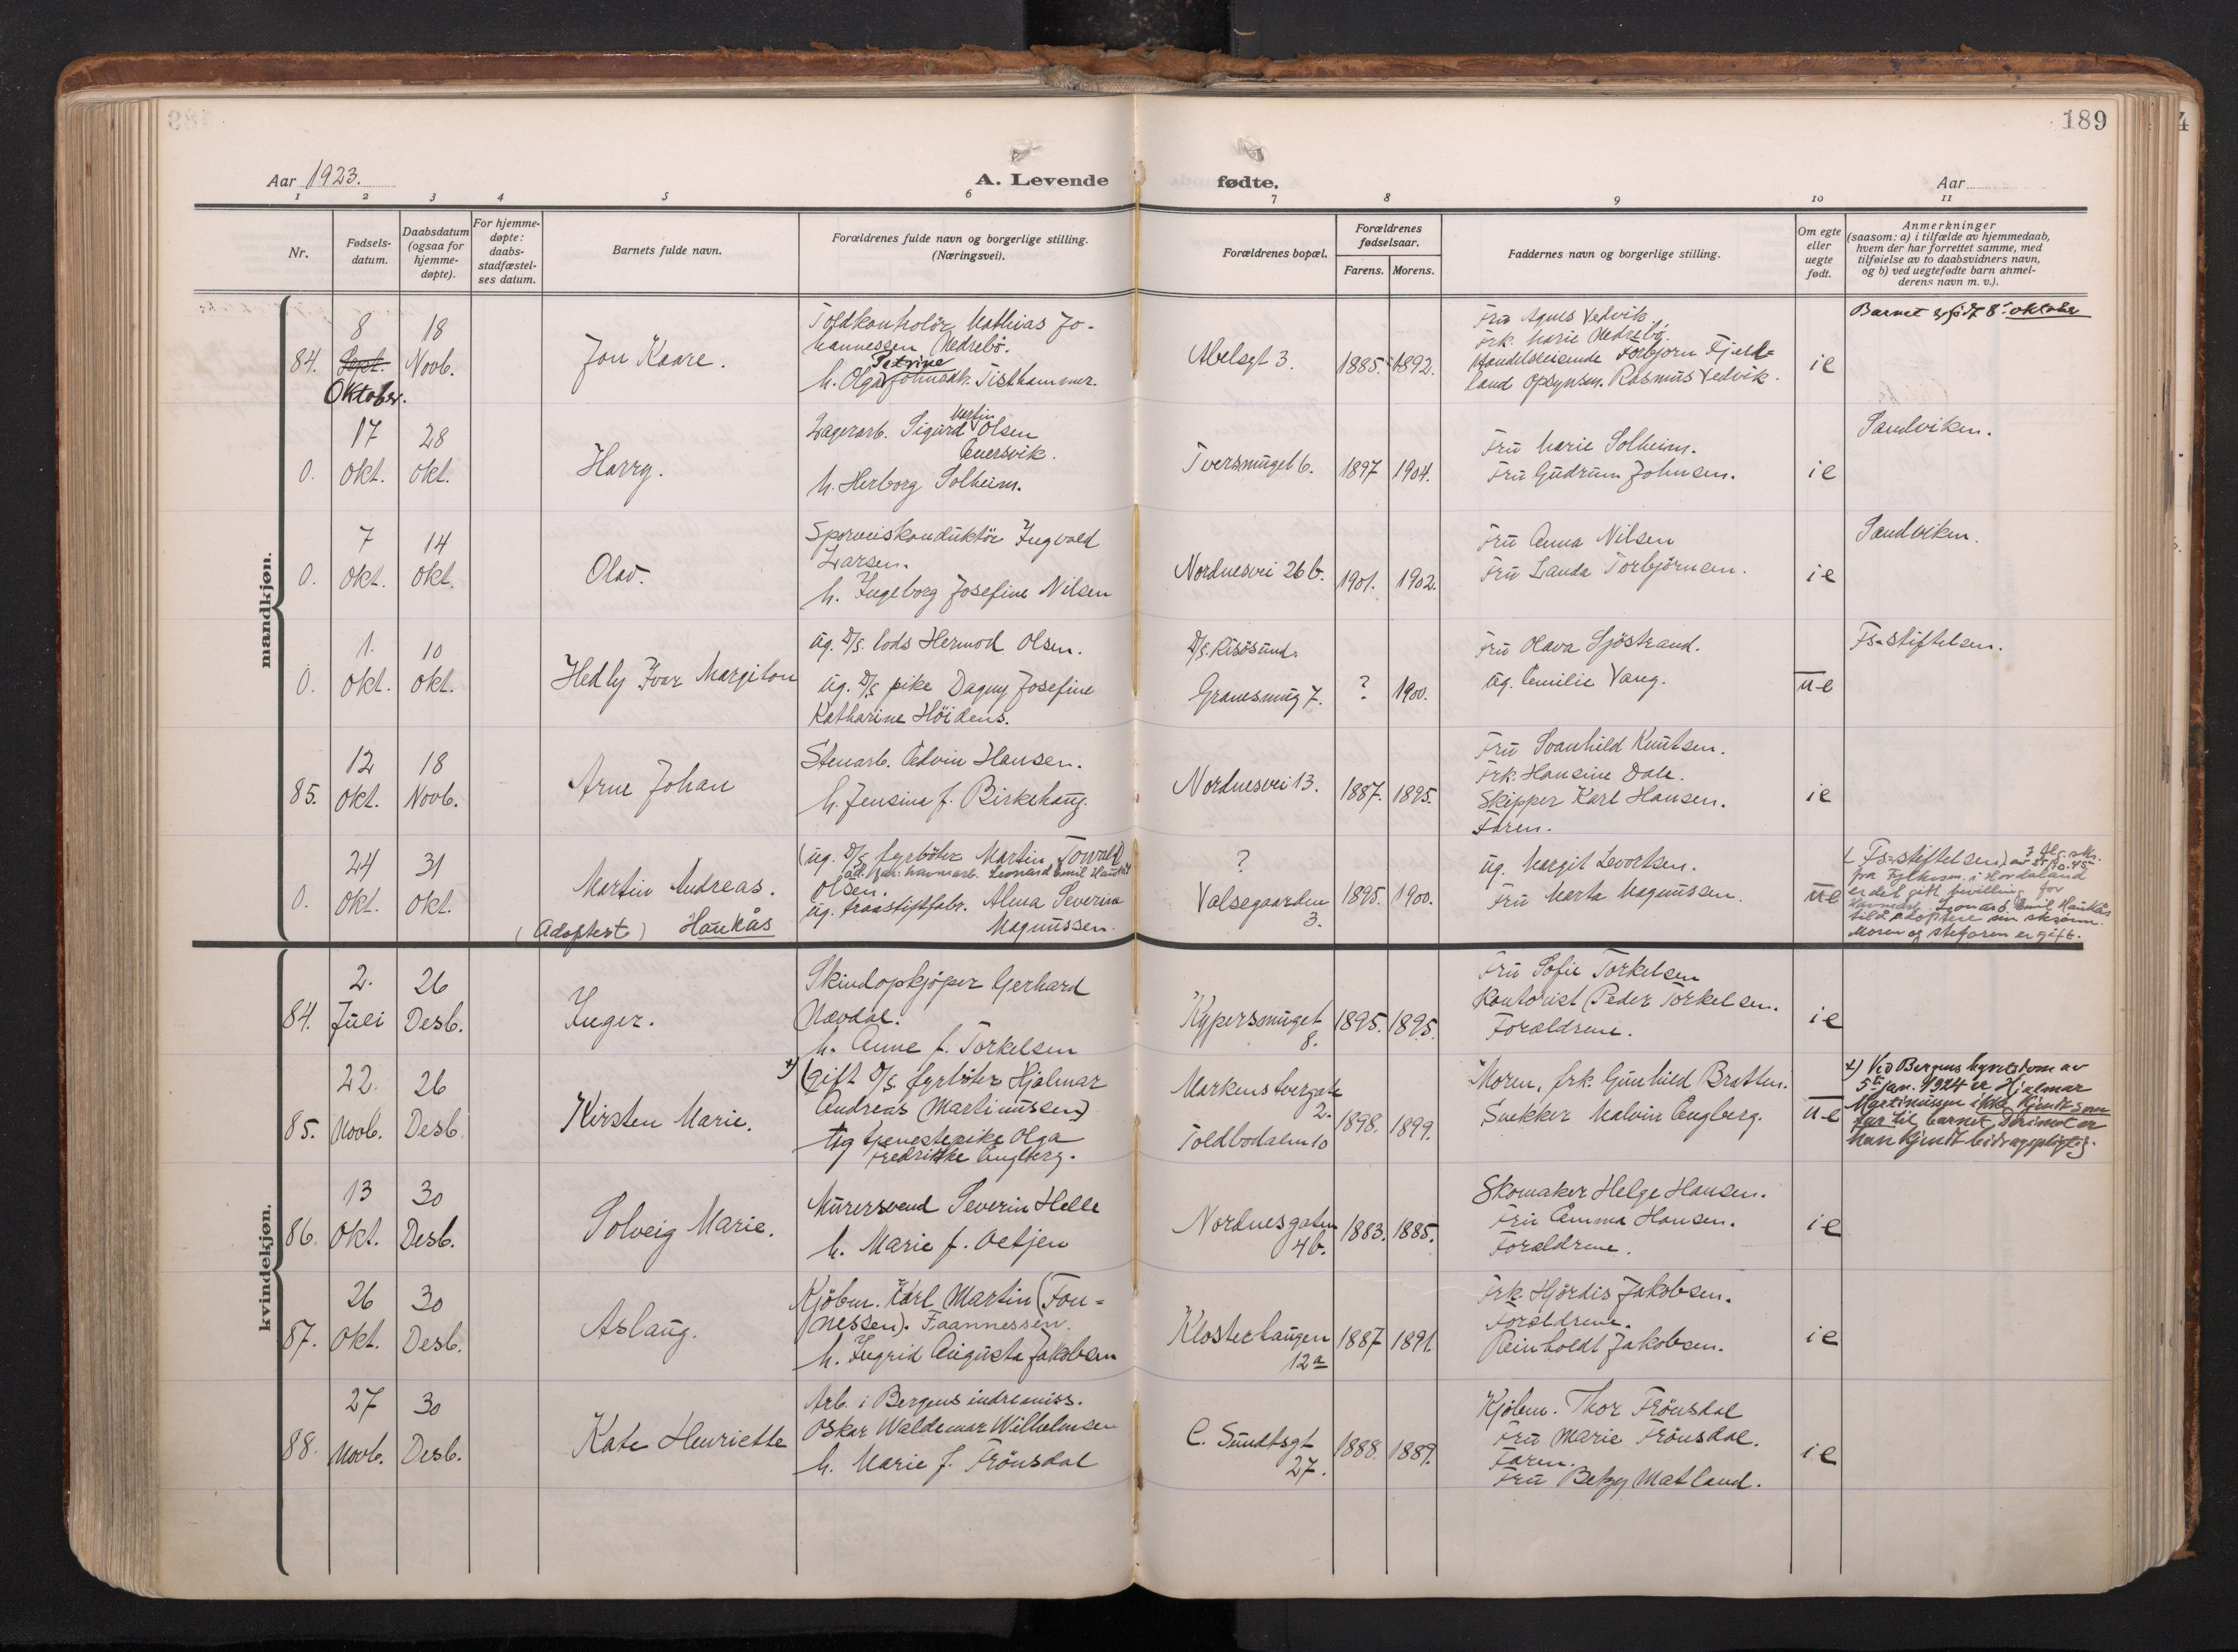 189
Aar 1923.
A. Levende fødte.
Aar
1 2 3 4 5 6 7 8 9 10 11
Nr.
Fødsels-
datum.
Daabsdatum
(ogsaa for
hjemme-
døpte).
For hjemme-
døpte:
daabs-
stadfæstel-
ses datum.
Barnets fulde navn.
Forældrenes fulde navn og borgerlige stilling.
(Næringsvei).
Forældrenes bopæl.
Forældrenes
fødselsaar.
Farens. Morens.
Faddernes navn og borgerlige stilling.
Om egte
eller
uegte
født.
Anmerkninger
(saasom: a) i tilfælde av hjemmedaab,
hvem der har forrettet samme, med
tilføielse av to daabsvidners navn,
og b) ved uegtefødte barn anmel-
derens navn m. v.).
mandkjøn.
84.
8
Sept.
Oktober.
18
Novb.
Jon Kaare.
Toldkontrolör Mathias Jo-
hannessen Nedrebö.
Petrine
h. Olga Johnsdk. Tisthammer.
Abelsgt 3.
1885. 1892.
Fru Agnes Vedvik.
Frk. Marie Nedrebö.
Handelsreisende Torbjorn Fjeld-
land Opsynsm. Rasmus Vedvik.
ie
Barnet er født 8' oktober
0.
17
Okt.
28
Okt.
Harry.
Martin
Lagerarb. Sigurd Olsen
Eversvik.
h. Herborg Solheim.
Tversmuget 6.
1897 1904.
Fru Marie Solheim.
Fru Gudrun Johnsen.
ie
Sandviken.
0.
7
Okt.
14
Okt.
Olav.
Sporveiskonduktör Ingvald
Larsen.
h. Ingeborg Josefine Nilsen
Nordnesvei 26 b.
1901. 1902.
Fru Anna Nilsen
Fru Landa Torbjörnsen.
ie
Sandviken.
0.
1.
Okt.
10
Okt.
Hedly Ivar Margiton
ug. D/S. lods Hermod Olsen.
ug. D/S pike Dagny Josefine
Katharine Höidens.
D/S. Risösund.
Gravesmug 7.
? 1900.
Fru Olava Sjöstrand.
ug. Emilie Vang.
u-e
Fs-stiftelsen.
85.
12
Okt.
18
Novb.
Arne Johan
Stenarb. Edvin Hansen.
h. Jensina f. Birkehaug.
Nordnesvei 13.
1887. 1895.
Fru Svanhild Knutsen.
Frk. Hansine Dale.
Skipper Karl Hansen.
Faren.
ie
0.
24
Okt.
31
Okt.
Martin Andreas.
(Adoptert) Haukås
(ug. D/S fyrböter Martin Torvald
havnearb. Leonard Emil Haukås
Olsen.
ug. traastiftfabr. Alma Severina
Magnussen.
?
Valsegaarden
3.
1895. 1900.
ug. Margit Levortsen.
Fru Marta Magnussen.
ue
(Fs-stiftelsen)
fra Fylkesm. i Hordaland
er det gitt bevilling for
Havnearb. Leonard Emil Haukås
til å adoptere sin stesönn.
Moren og stefaren er gift.
kvindekjøn.
84.
2.
Juli
26
Desb.
Inger.
Skindopkjöper Gerhard
Nævdal.
h. Anne f. Torkelsen
Kypersmuget
8.
1895. 1895.
Fru Sofie Torkelsen
Kontorist Peder Torkelsen.
Forældrene.
ie
85.
22.
Novb.
26
Desb.
Kirsten Marie.
x) (Gift D/S fyrböter Hjalmar
Andreas Martinussen)
ug tjenestepike Olga
Fredrikke Engberg.
Markens tvergate
2.
Toldbodalm 10
1898. 1899.
Moren, frk. Gunhild Bratten.
Snekker Malvin Engberg.
u-e
x) Ved Bergens byretsdom av
5te jan. 1924 er Hjalmar
Martinussen ikke kjendt som
far til barnet. Derimot er
han kjendt bidragspligtig.
86.
13
Okt.
30
Desb.
Solveig Marie.
Murersvend Severin Helle
h. Marie f. Oetjen
Nordnesgaten
4b.
1883. 1885.
Skomaker Helge Hansen.
Fru Emma Hansen.
Forældrene.
ie
87.
26
Okt.
30
Desb.
Aslaug.
Kjöbm. Karl Martin (Fon-
nessen). Faannessen.
h. Ingrid Augusta Jakobsen
Klosterhaugen
12a
1887 1891.
Frk. Hjördis Jakobsen.
Forældrene.
Reinholdt Jakobsen.
ie
88.
27
Novb.
30
Desb.
Kate Henriette
Arb. i Bergens indremiss.
Oskar Waldemar Wilhelmsen
h. Marie f. Frönsdal
C. Sundtsgt
27.
1888. 1889.
Kjöbm. Thor Frönsdal
Fru Marie Frönsdal.
Faren.
Fru Betzy Matland.
ie